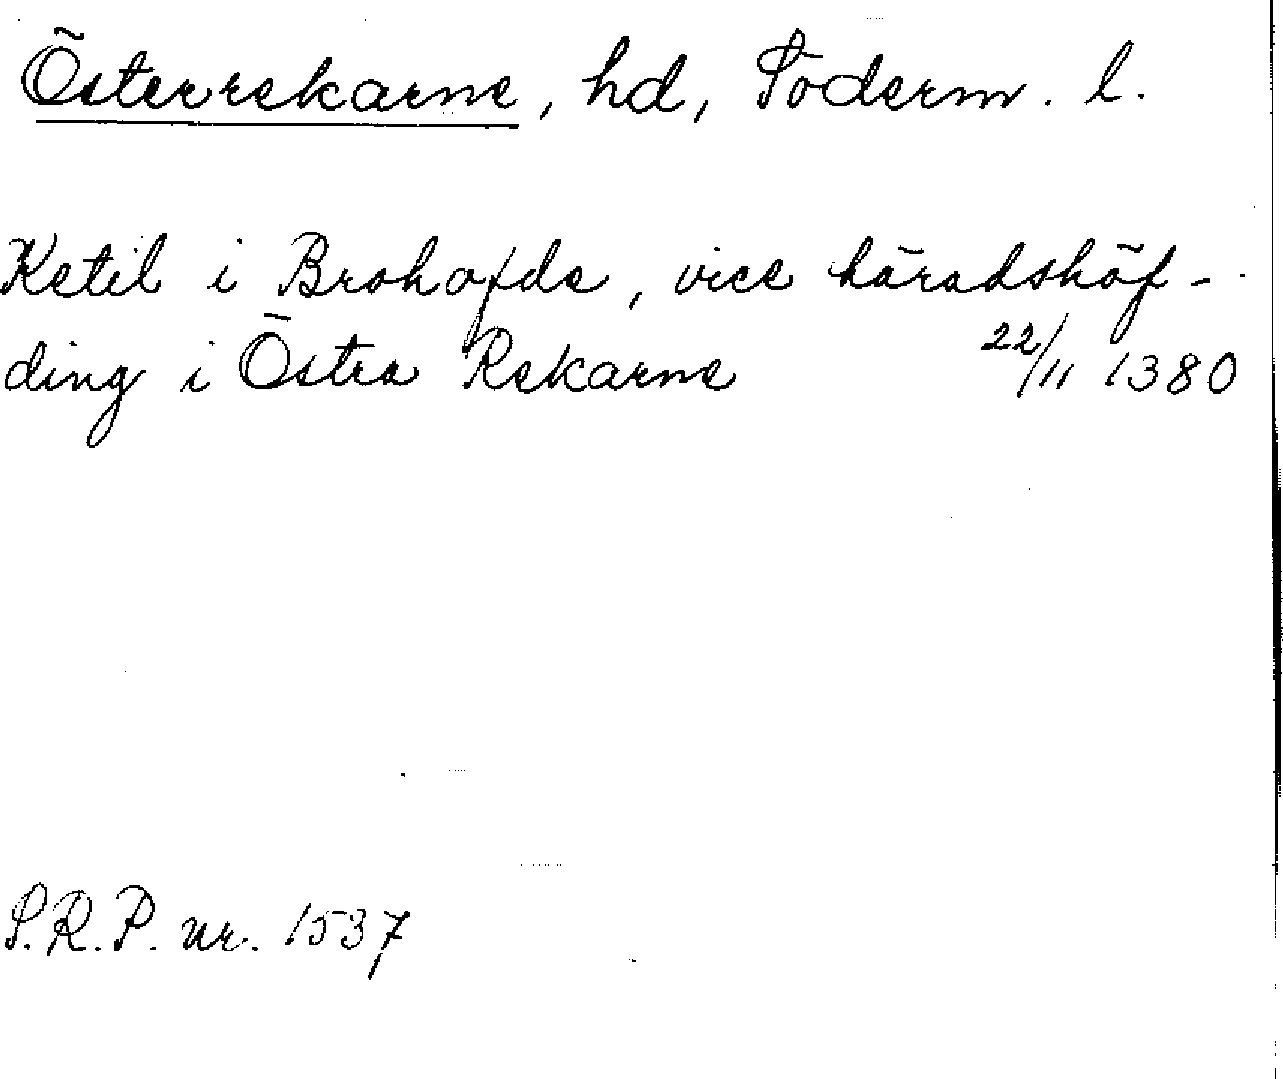 Österrekarne, hd, Söderm. l.
Ketil i Brohofde, vice häradshöf-
ding i Östra Rekarne 22/11 1380
S.R.P. nr. 1537